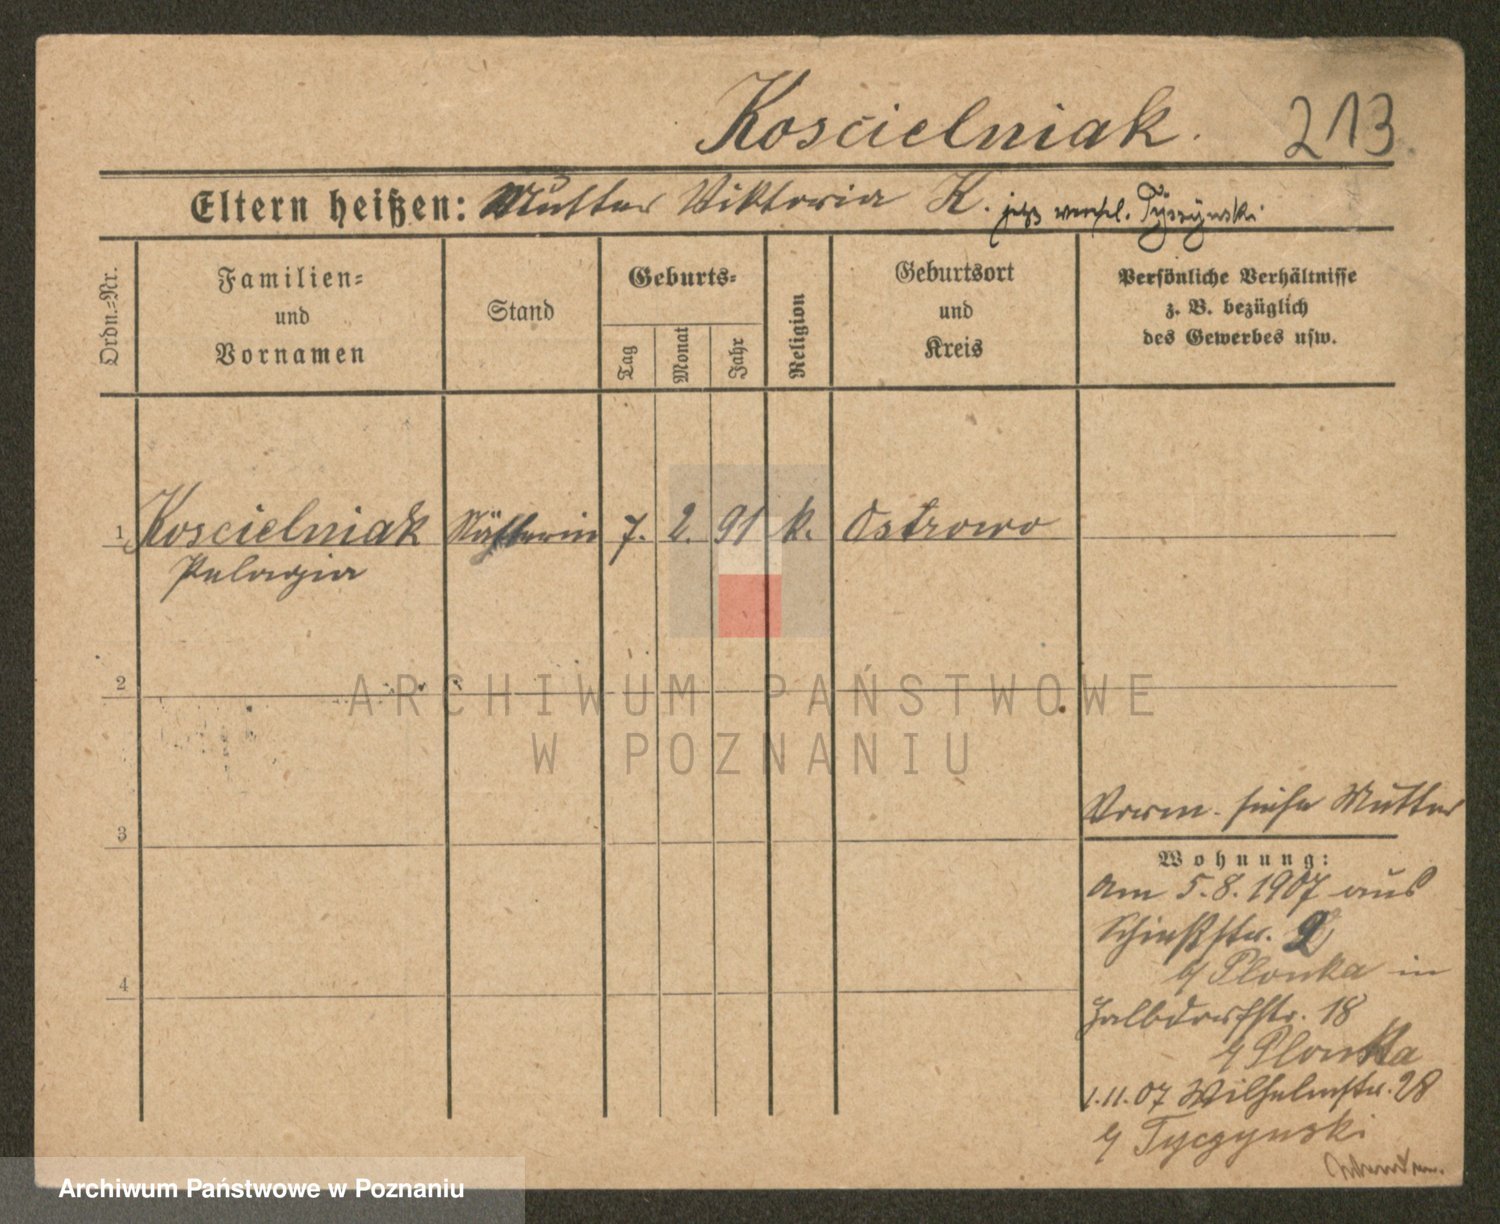 Koscielniak. 213
Eltern heißen: Mutter Viktoria K. jetzt verehel. Tyczynski
Ordn.=Nr.
Familien=
und
Vornamen
Stand
Geburts=
Tag
Monat
Jahr
Religion
Geburtsort
und
Kreis
Persönliche Verhältnisse
z. B. bezüglich
des Gewerbes usw.
1 Koscielniak Nätherin 7. 2. 91 k. Ostrowo
Pelagia
2
ARCHIWUM PAŃSTWOWE
W POZNANIU
3
Vorm. siehe Mutter
Wohnung:
Am 5.8.1907 aus
Schießstr. 2
b/ Plonka in
Halbdorfstr. 18
b/ Plonka
1.11.07 Wilhelmstr. 28
b/ Tyczynski
4
Archiwum Państwowe w Poznaniu